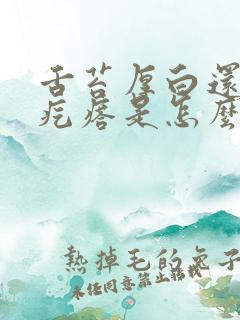 舌苔厚白還
疙瘩是怎麼
熱掉毛的兔子
未經同意禁止轉載